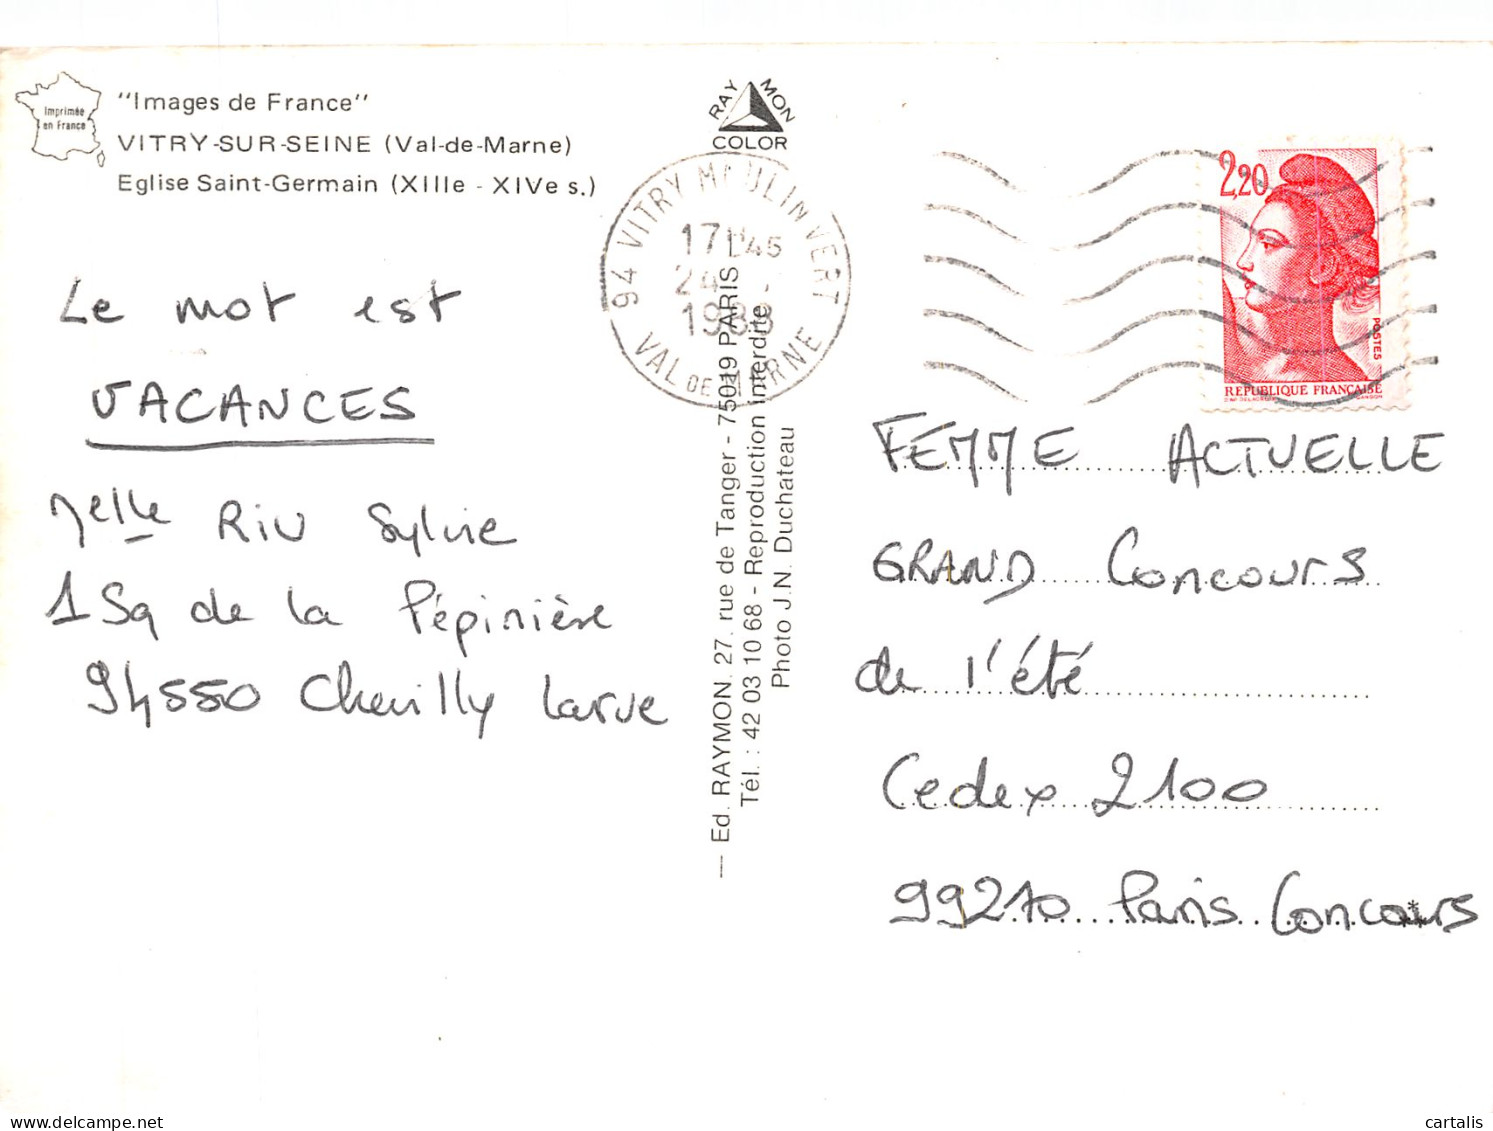 Imprimée
en France
"Images de France"
VITRY-SUR-SEINE (Val-de-Marne)
Eglise Saint-Germain (XIIIe - XIVe s.)
RAYMON
COLOR
94 VITRY MOULIN VERT
17H45
24
1988
VAL DE MARNE
2,20
POSTES
REPUBLIQUE FRANÇAISE
Le mot est
VACANCES
Melle Riu Sylvie
1 Sq de la Pépinière
94550 Chevilly Larue
— Ed. RAYMON. 27. rue de Tanger - 75019 PARIS
Tél. : 42 03 10 68 - Reproduction Interdite
Photo J.N. Duchateau
FEMME ACTUELLE
GRAND Concours
de l'été
Cedex 2100
99210 Paris Concours
delcampe.net
cartalis